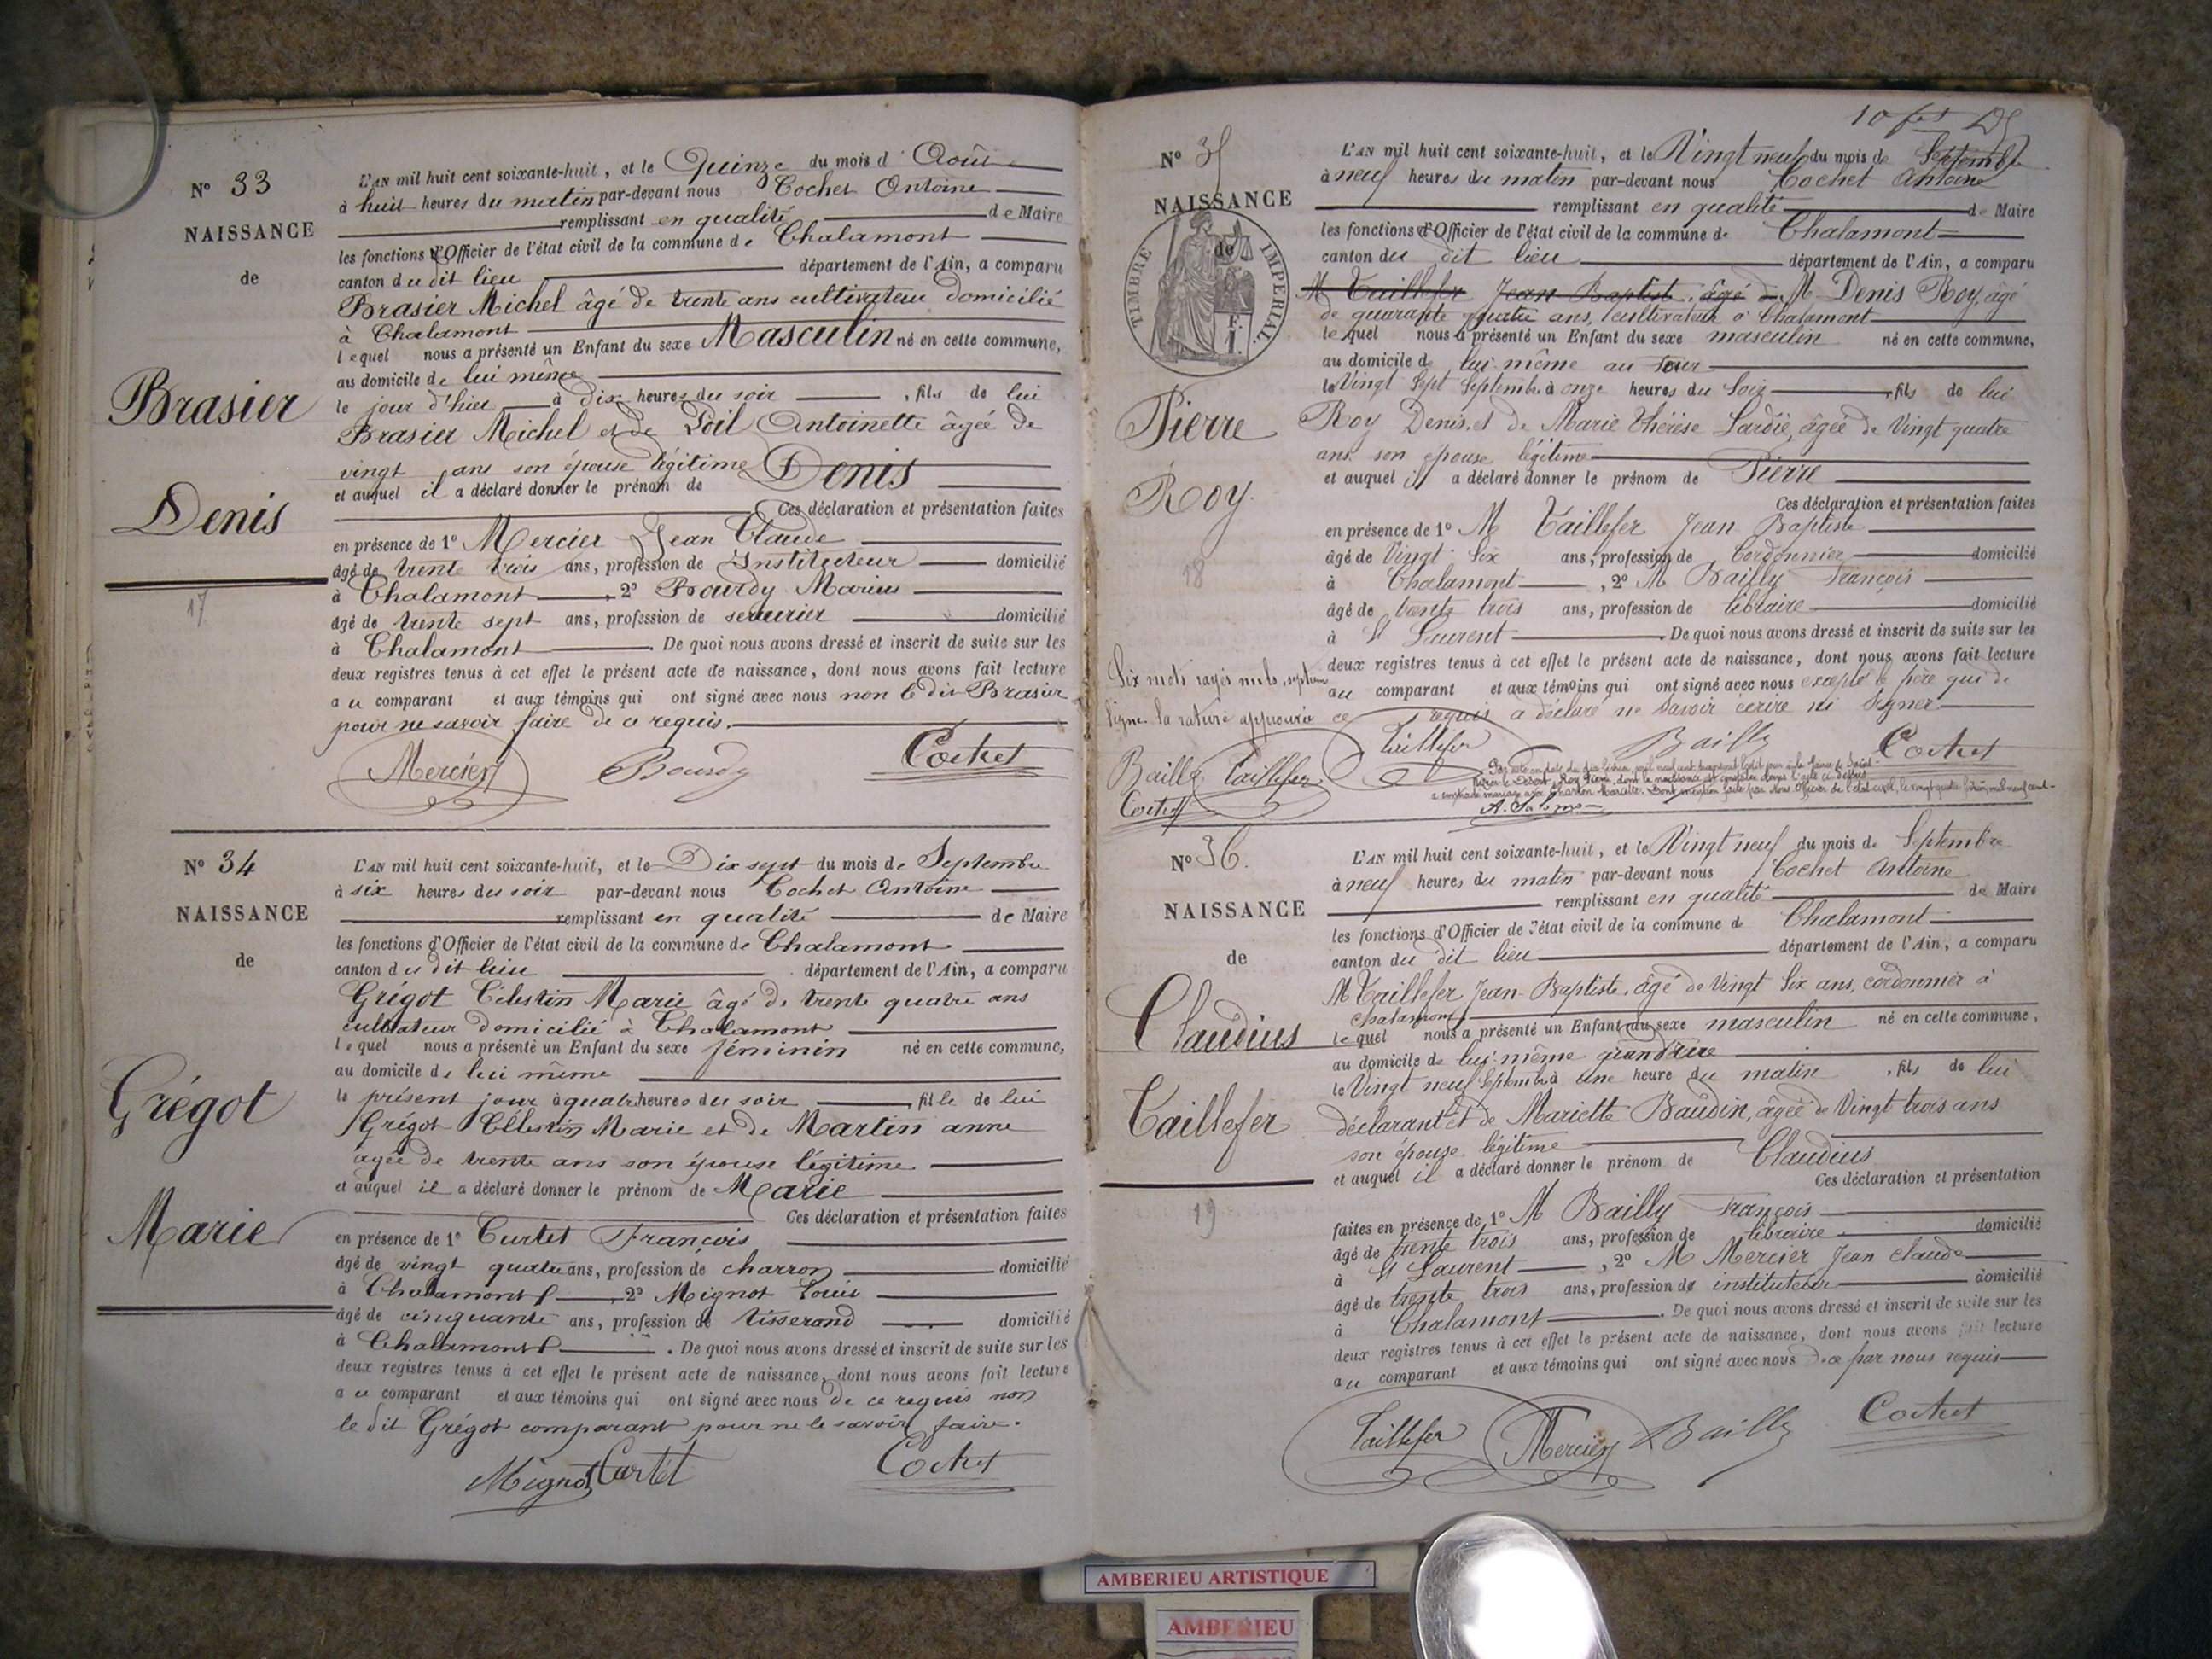 N° 33
NAISSANCE
de
Brasier
Denis
17
L'AN mil huit cent soixante-huit, et le Quinze du mois d'Août
à huit heures du matin par-devant nous Cochet Antoine
remplissant en qualité de Maire
les fonctions d'Officier de l'état civil de la commune de Chalamont
canton du dit lieu département de l'Ain, a comparu
Brasier Michel âgé de trente ans cultivateur domicilié
à Chalamont
lequel nous a présenté un Enfant du sexe Masculin né en cette commune,
au domicile de lui même
le jour d'hier à dix heures du soir, fils de lui
Brasier Michel et de Antoinette âgée de
vingt ans son épouse légitime
et auquel il a déclaré donner le prénom de Denis
Ces déclaration et présentation faites
en présence de 1° Mercier Jean Claude
âgé de trente trois ans, profession de Instituteur domicilié
à Chalamont, 2° Bourdy Marius
âgé de trente sept ans, profession de serrurier domicilié
à Chalamont. De quoi nous avons dressé et inscrit de suite sur les
deux registres tenus à cet effet le présent acte de naissance, dont nous avons fait lecture
au comparant et aux témoins qui ont signé avec nous non le dit Brasier
pour ne savoir faire de ce requis.
Mercier Bourdy Cochet
N° 34
NAISSANCE
de
Grégot
Marie
L'AN mil huit cent soixante-huit, et le Dix sept du mois de Septembre
à six heures du soir par-devant nous Cochet Antoine
remplissant en qualité de Maire
les fonctions d'Officier de l'état civil de la commune de Chalamont
canton du dit lieu département de l'Ain, a comparu
Grégot Célestin Marie âgé de trente quatre ans
cultivateur domicilié à Chalamont
lequel nous a présenté un Enfant du sexe féminin né en cette commune,
au domicile de lui même
le présent jour à quatre heures du soir, fille de lui
Grégot Célestin Marie et de Martin anne
agée de trente ans son épouse légitime
et auquel il a déclaré donner le prénom de Marie
Ces déclaration et présentation faites
en présence de 1° Curtet François
âgé de vingt quatre ans, profession de charron domicilié
à Chalamont, 2° Mignot Louis
âgé de cinquante ans, profession de tisserand domicilié
à Chalamont. De quoi nous avons dressé et inscrit de suite sur les
deux registres tenus à cet effet le présent acte de naissance, dont nous avons fait lecture
au comparant et aux témoins qui ont signé avec nous de ce requis non
le dit Grégot comparant pour ne le savoir faire.
Mignot Curtet Cochet
N° 35
NAISSANCE
de
TIMBRE IMPERIAL
Pierre
Roy.
18
L'AN mil huit cent soixante-huit, et le Vingt neuf du mois de Septembre
à neuf heures du matin par-devant nous Cochet Antoine
remplissant en qualité de Maire
les fonctions d'Officier de l'état civil de la commune de Chalamont
canton du dit lieu département de l'Ain, a comparu
M Taillefer Jean Baptiste, âgé de M Denis Roy, âgé
de quarante quatre ans, cultivateur à Chalamont
lequel nous a présenté un Enfant du sexe masculin né en cette commune,
au domicile de lui-même au
le Vingt Sept Septembre à onze heures du Soir, fils de lui
Roy Denis et de Marie Thérèse âgée de Vingt quatre
ans son épouse légitime
et auquel il a déclaré donner le prénom de Pierre
Ces déclaration et présentation faites
en présence de 1° M Taillefer Jean Baptiste
âgé de Vingt Six ans, profession de Cordonnier domicilié
à Chalamont, 2° M Bailly François
âgé de trente trois ans, profession de libraire domicilié
à St Laurent. De quoi nous avons dressé et inscrit de suite sur les
deux registres tenus à cet effet le présent acte de naissance, dont nous avons fait lecture
au comparant et aux témoins qui ont signé avec nous excepté le père qui de
ce requis a déclaré ne Savoir écrire ni signer
Six mots rayés nuls, septième
ligne la rature approuvée
Bailly Taillefer
Cochet
Taillefer Bailly Cochet
Roy Pierre, dont la naissance est constatée dans l'acte ci-dessus
N° 36.
NAISSANCE
de
Claudius
Taillefer
19
L'AN mil huit cent soixante-huit, et le Vingt neuf du mois de Septembre
à neuf heures du matin par-devant nous Cochet Antoine
remplissant en qualité de Maire
les fonctions d'Officier de l'état civil de la commune de Chalamont
canton du dit lieu département de l'Ain, a comparu
M Taillefer Jean-Baptiste, âgé de Vingt Six ans, cordonnier à
Chalamont
lequel nous a présenté un Enfant du sexe masculin né en cette commune,
au domicile de lui-même grand'rue
le Vingt neuf Septembre à une heure du matin, fils de lui
déclarant et de Mariette Baudin, âgée de Vingt trois ans
son épouse légitime
et auquel il a déclaré donner le prénom de Claudius
Ces déclaration et présentation
faites en présence de 1° M Bailly François
âgé de trente trois ans, profession de libraire domicilié
à St Laurent, 2° M Mercier Jean claude
âgé de trente trois ans, profession de instituteur domicilié
à Chalamont. De quoi nous avons dressé et inscrit de suite sur les
deux registres tenus à cet effet le présent acte de naissance, dont nous avons fait lecture
au comparant et aux témoins qui ont signé avec nous de ce par nous requis
Taillefer Mercier Bailly Cochet
AMBERIEU ARTISTIQUE
AMBERIEU